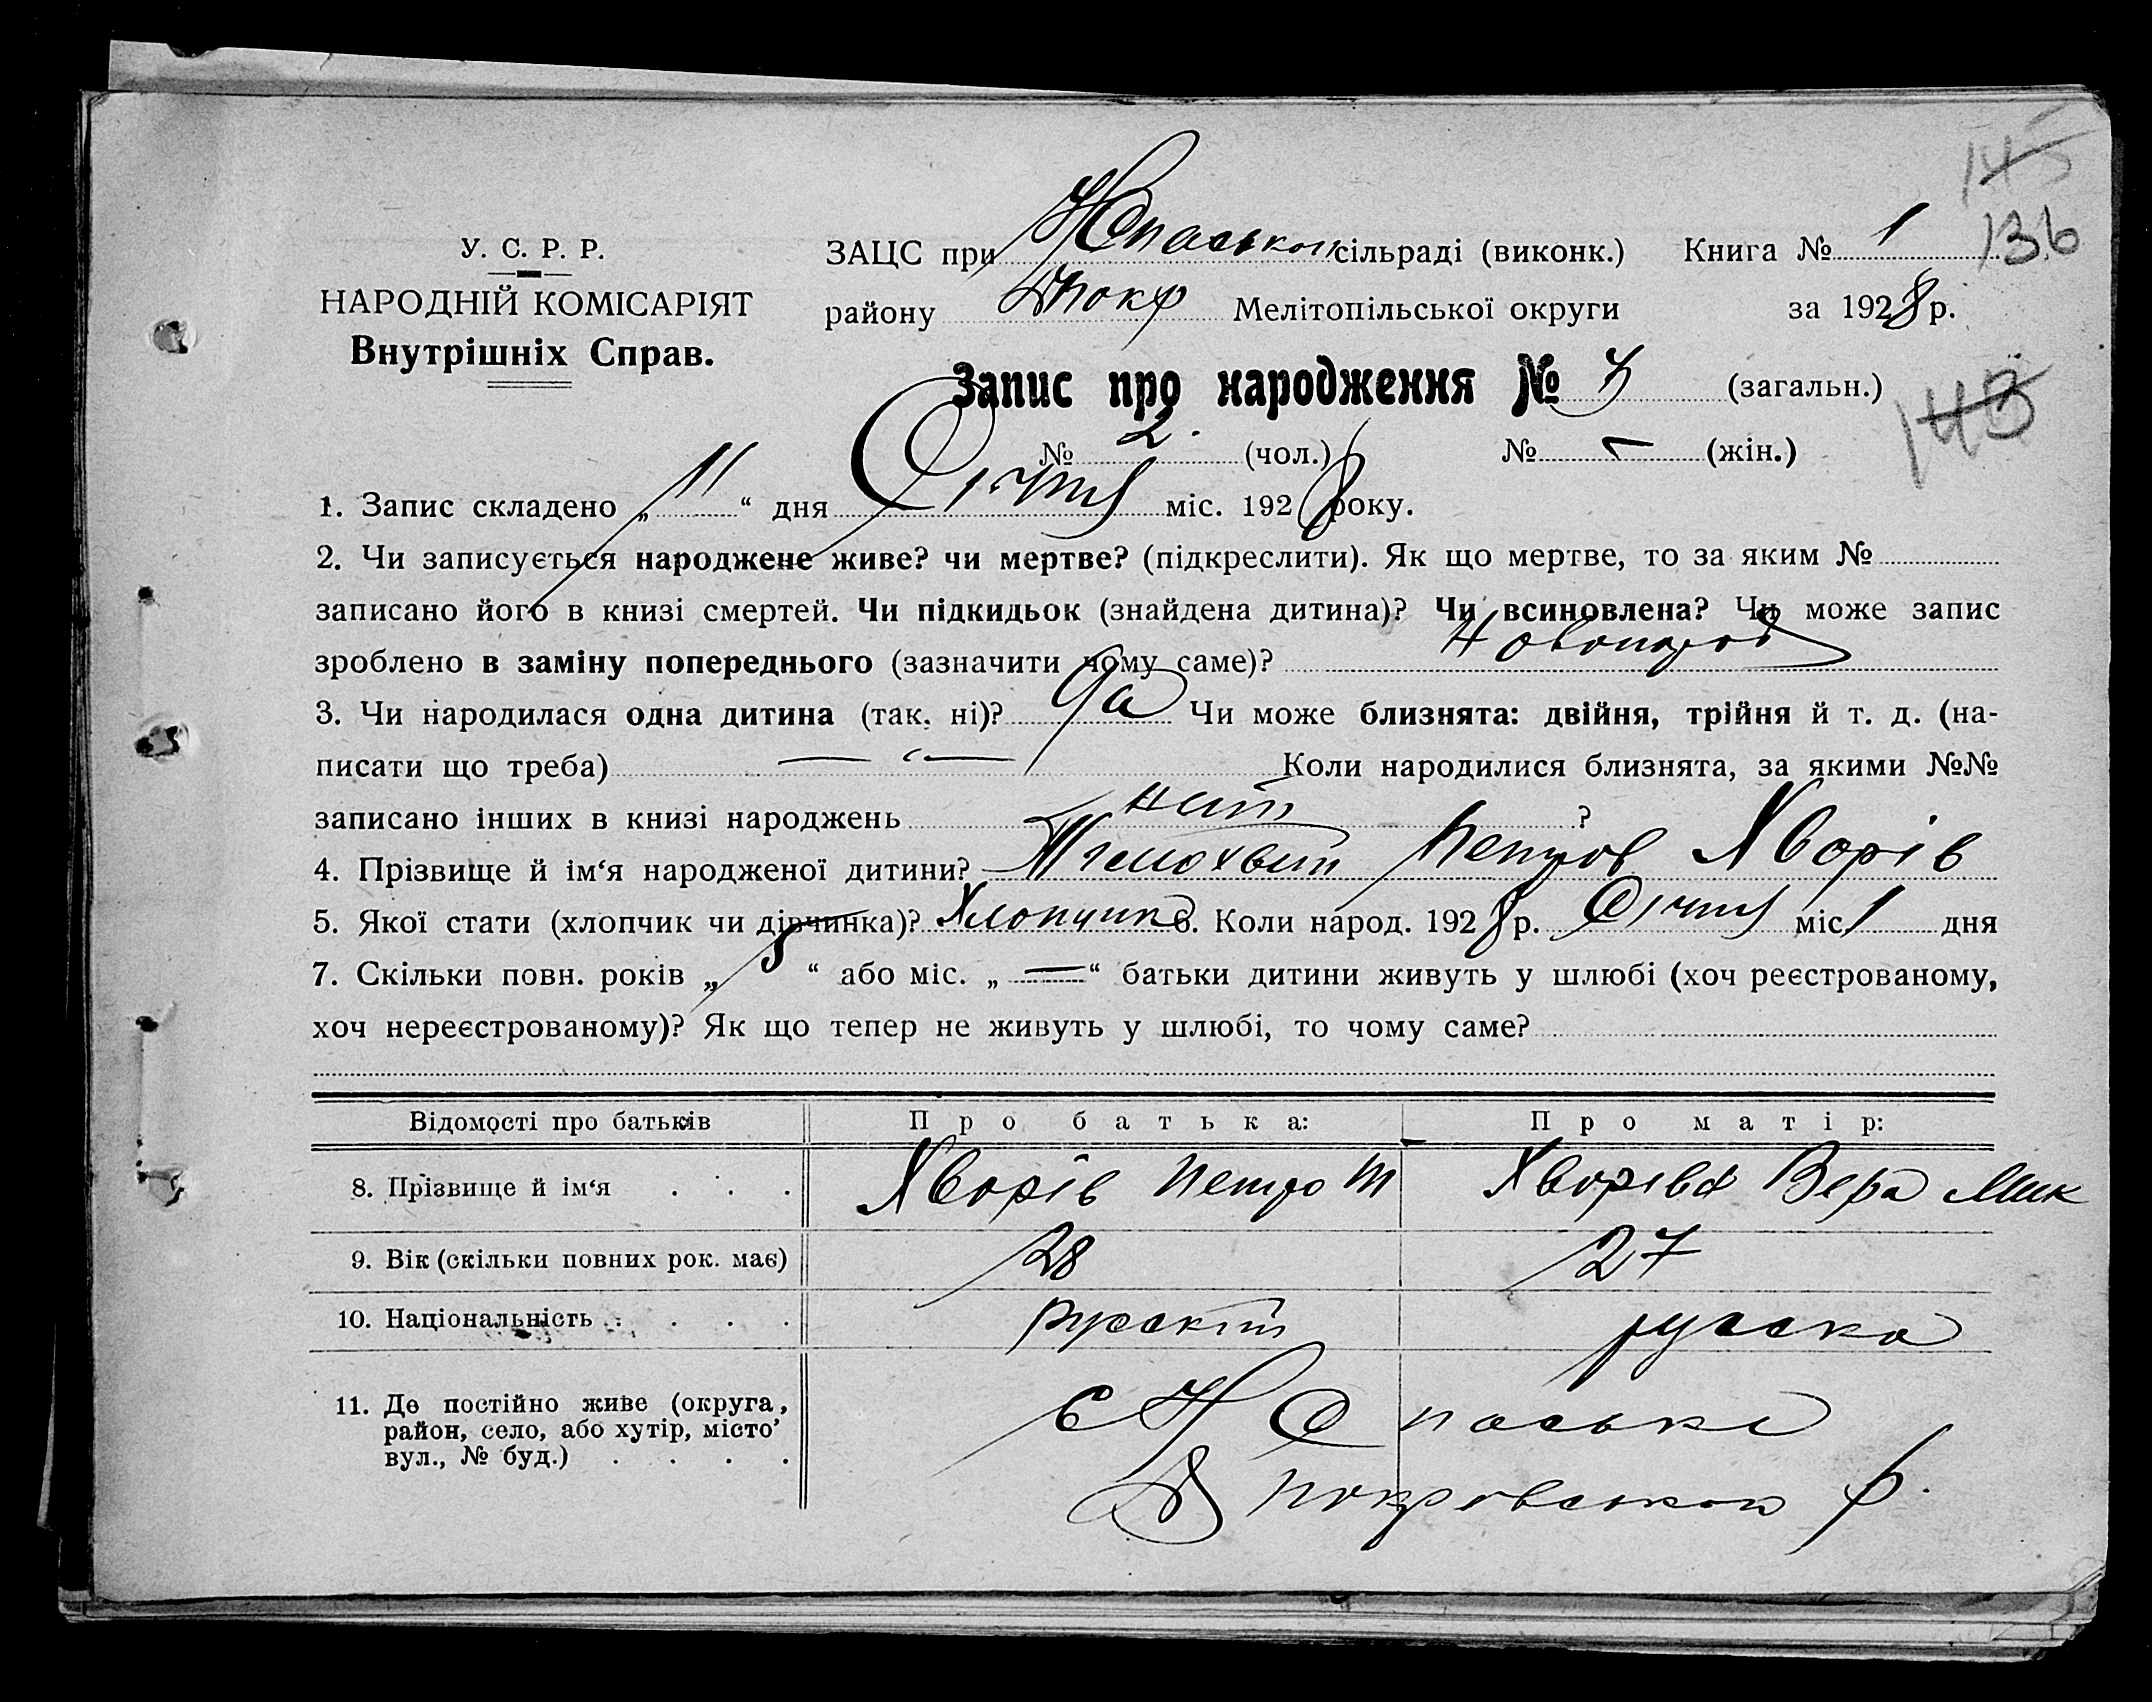 145
136
У. С. Р. Р.
НАРОДНІЙ КОМІСАРІЯТ
Внутрішніх Справ.
ЗАЦС при НСпаської сільраді (виконк.) Книга № 1
району Мелітопільської округи за 1928 р.
Запис про народження № 3 (загальн.)
143
№ 2. (чол.) № – (жін.)
1. Запис складено „11“ дня Січня міс. 1928 року.
2. Чи записується народжене живе? чи мертве? (підкреслити). Як що мертве, то за яким №
записано його в книзі смертей. Чи підкидьок (знайдена дитина)? Чи всиновлена? Чи може запис
зроблено в заміну попереднього (зазначити чому саме)?
3. Чи народилася одна дитина (так. ні)? да Чи може близнята: двійня, трійня й т. д. (на-
писати що треба) — “ — Коли народилися близнята, за якими №№
записано інших в книзі народжень ?
4. Прізвище й ім‘я народженої дитини? Петров Хворів
5. Якої стати (хлопчик чи дівчинка)? Хлопчик 6. Коли народ. 1928 р. Січня міс. 1 дня
7. Скільки повн. років „5“ або міс. „—“ батьки дитини живуть у шлюбі (хоч реєстрованому,
хоч нереєстрованому)? Як що тепер не живуть у шлюбі, то чому саме?
Відомості про батьків Про батька: Про матір:
8. Прізвище й ім‘я . . . Хворів Петро Т Хворіва Вера Мик
9. Вік (скільки повних рок. має) 28 27
10. Національність . . . . руский руска
11. Де постійно живе (округа, с Н Спаське
район, село, або хутір, місто’
вул., № буд.) . . . . Покровський р.